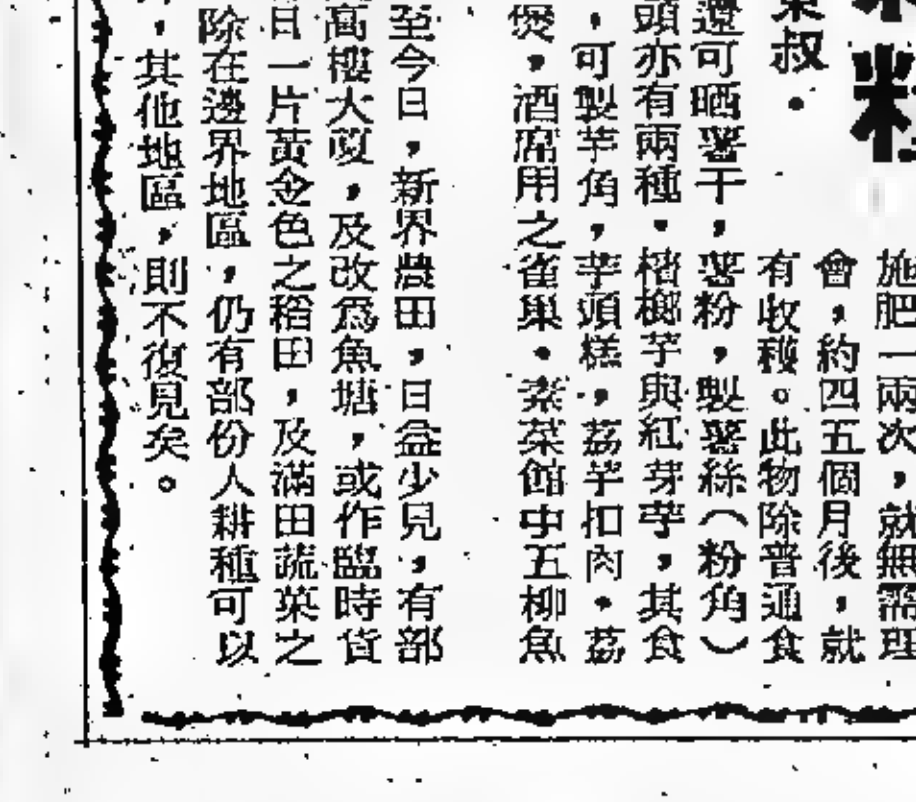 粽
東叔・
施肥一兩次，就無需理
會，約四五個月後，就
有收穫。此物除普通食
還可晒薯干，薯粉，製薯絲（粉角）
頭亦有兩種・檳榔芋與紅芽芋，其食
，可製芋角，芋頭糕，荔芋扣肉・荔
煲，酒席用之雀巢・素菜館中五柳魚
至今日，新界農田，日益少見，有部
高樓大廈，及改為魚塘，或作臨時貨
日一片黃金色之稻田，及滿田蔬菜之
除在邊界地區，仍有部份人耕種可以
，其他地區，則不復見矣。